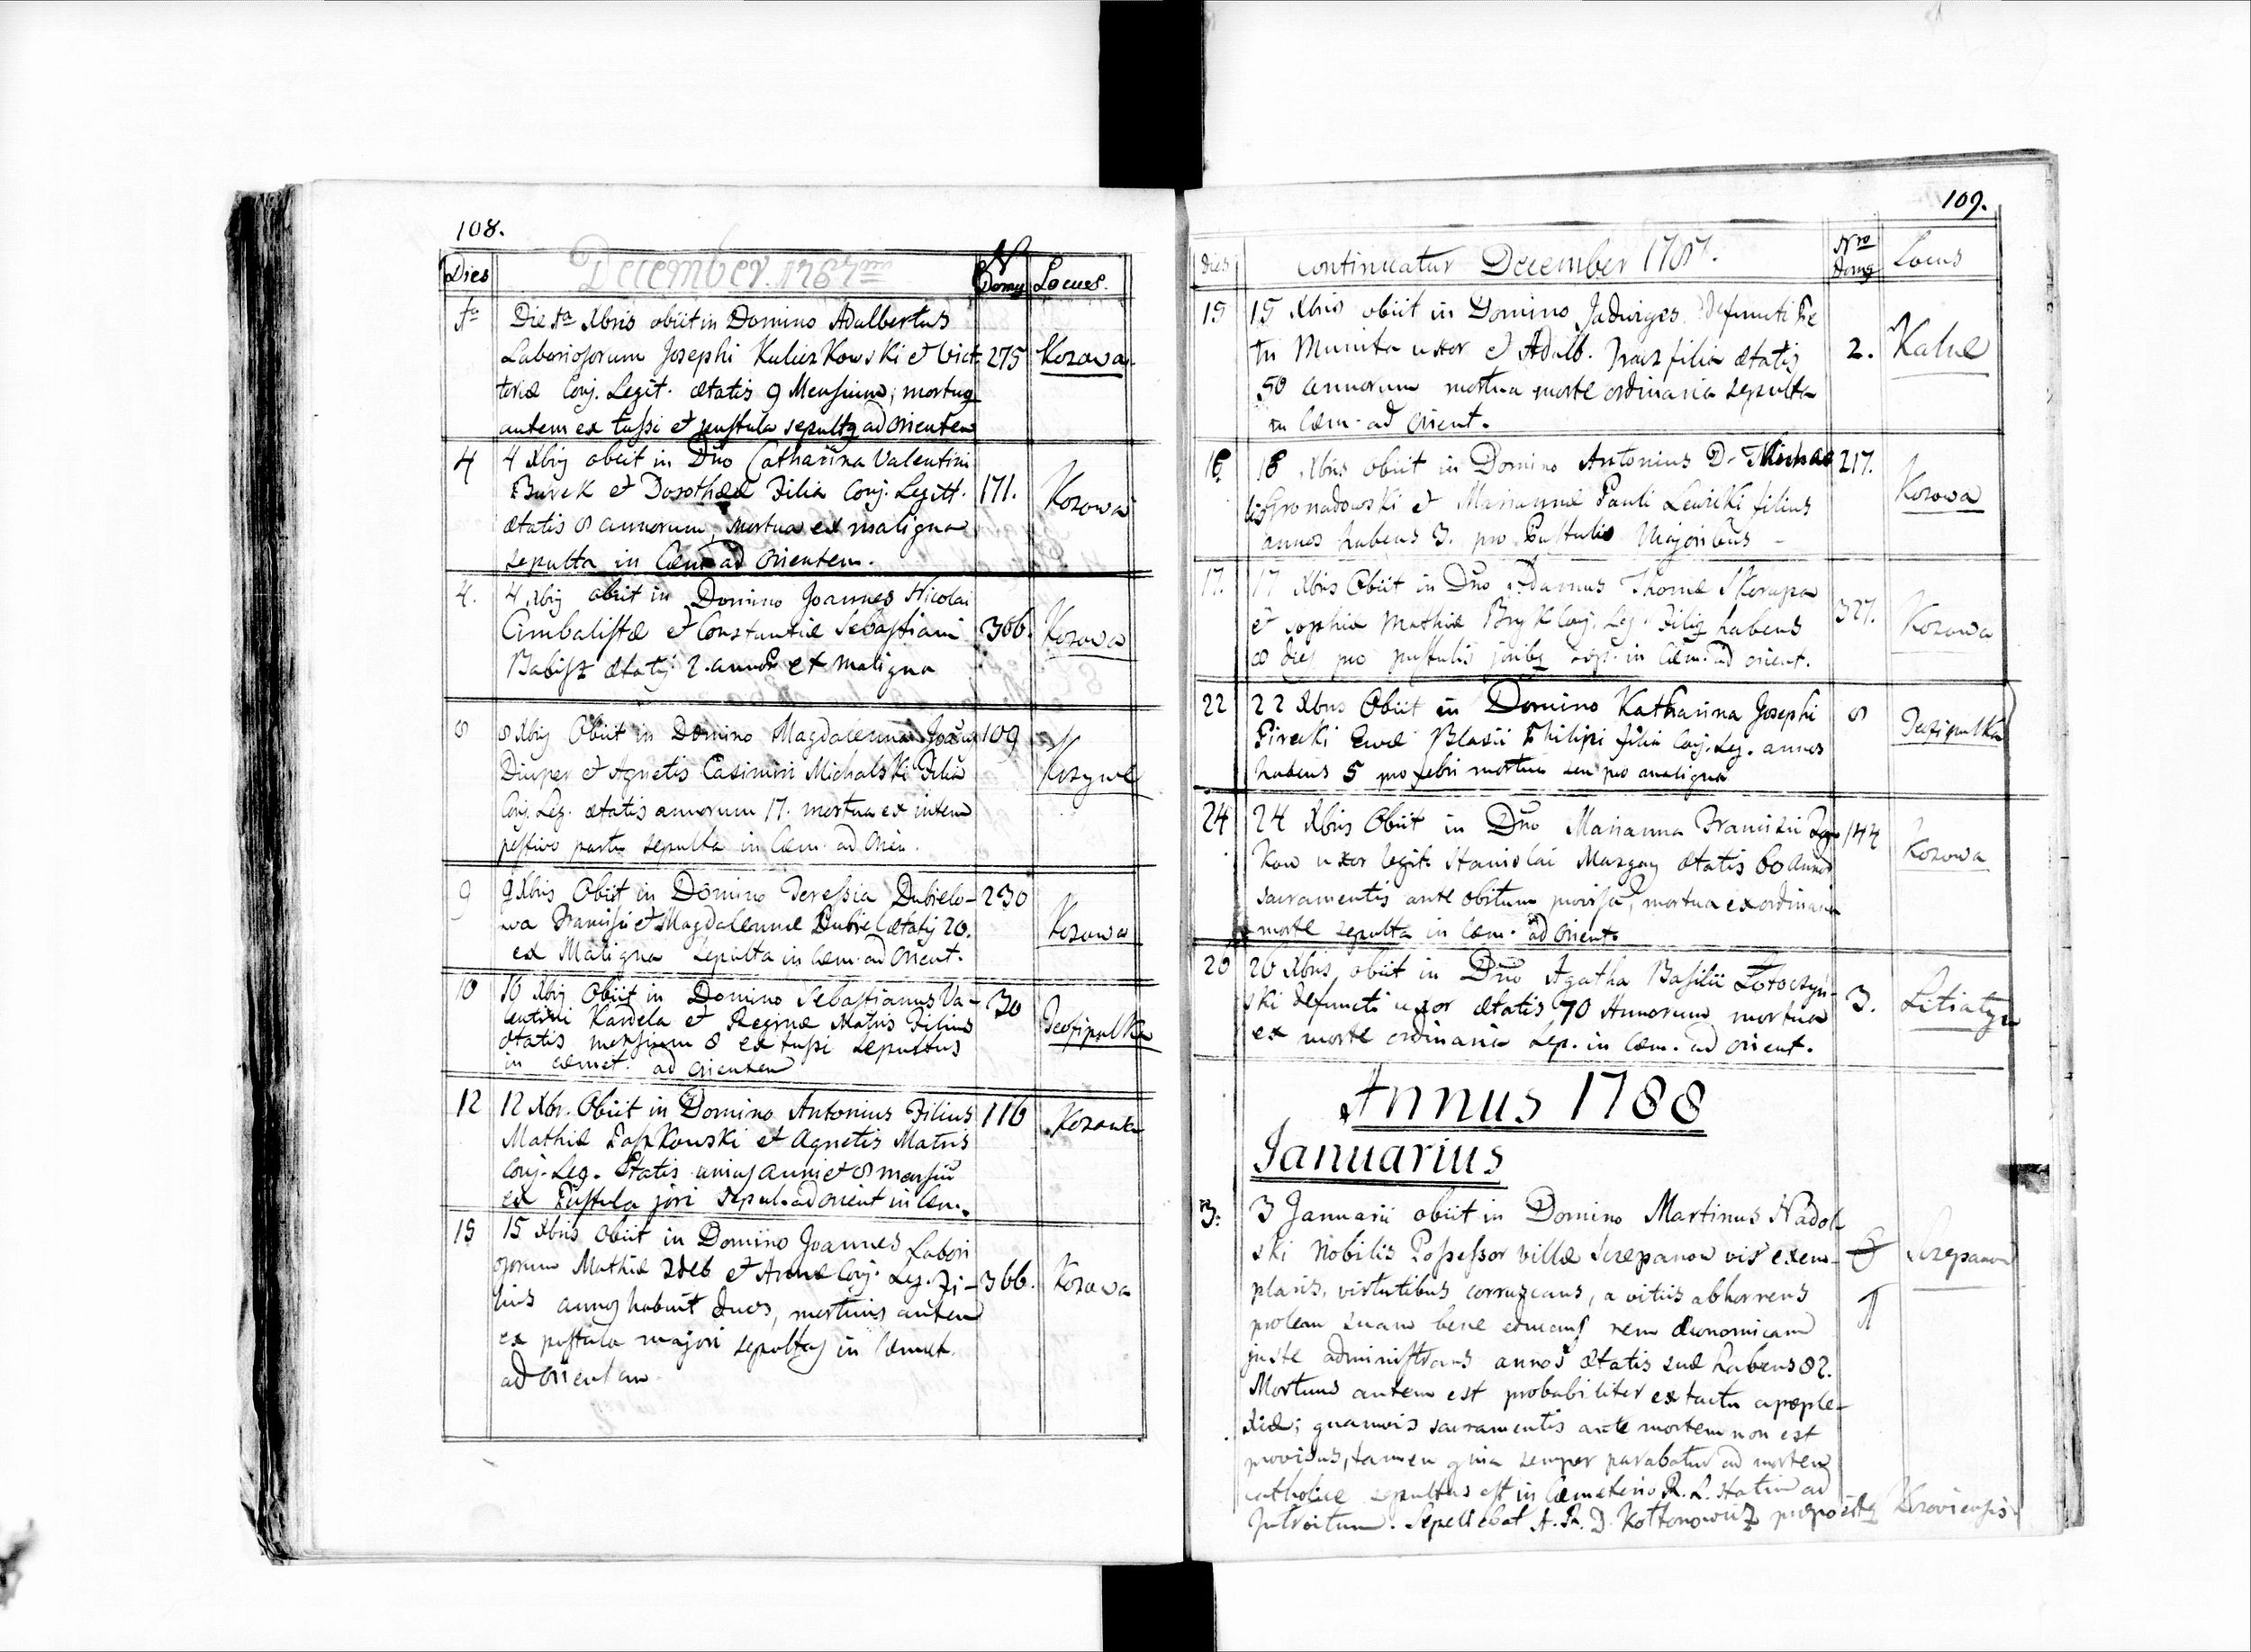 108.
Dies
December 1787mo
N Domg
Locus.
1a
Die 1a Xbris obiit in Domino Adalbertus
Laboriosorum Josephi Kulczkowski et Vict-
275
Kozowa
toriæ Conj. Legit. ætatis 9 Mensium; mortug
autem ex tussi et pustula sepultg ad orientem
4
4 Xbrig obiit in Dno Catharina Valentini
Burek et Dorotheæ Filia Conj. Legitt.
171.
Kozowa
ætatis 8 annorum, mortua ex maligna
sepulta in Cæm ad orientem.
4.
4 Xbrig obiit in Domino Joannes Nicolai
Cimbalistæ et Constantiæ Sebastiani
366.
Kozowa
Babisz ætatis 2. annor ex maligna
8
8 Xbrig Obiit in Domino Magdalenna Joan
109
Diuper et Agnetis Casimiri Michalski Filia
Kozowæ
Conj. Leg. ætatis annorum 17. mortua ex intem
pestivo partu sepulta in Cæm. ad Orien.
9
9 Xbris Obiit in Domino Teressia Dubielo-
230
wa Francisci et Magdalennæ Dubiel ætatis 20.
Kozowa
ex Maligna sepulta in Cæm. ad Orient.
10
10 Xbrig Obiit in Domino Sebastianus Va-
30
lentini Kardela et Reginæ Matris Filius
Teofipulka
ætatis mensium 8 ex tussi sepultus
in cæmet. ad orientem
12
12 Xbr. Obiit in Domino Antonius Filius
116
Kozowa
Mathiæ Paszkowski et Agnetis Matris
Conj. Leg. Ætatis unius anni et 8 mensiu
ex Pustula jori Sepul. ad orient in Cæm.
15
15 Xbris Obiit in Domino Joannes Labori
osorum Mathiæ Zdeb et Annæ Conj. Leg. Fi-
366.
Kozowa
lius annos habuit duos, mortuus autem
ex pustula majori sepultus in Cæmet.
ad orientem
109.
Dies
Continuatur December 1787.
Nro Domg
Locus
15
15 Xbris obiit in Domino Jadwiges defuncti Pe
tri Munita uxor et Adalb. filia ætatis
2.
Kalne
50 annorum mortua morte ordinaria sepulta
in Cæm. ad Orient.
18
18 Xbris obiit in Domino Antonius D. Michae
217.
lis Gronadowski et Mariannæ Pauli Lewicki filius
Kozowa
annos habens 3. pro Pustulis Majoribus -
17.
17 Xbris Obiit in Dno Adamus Thomæ Skorupa
327.
et Sophiæ Mathiæ Bryk Conj. Leg. Filig habens
Kozowa
8 dies pro pustulis joribg Sep. in Cæm. ad orient.
22
22 Xbris Obiit in Domino Katharina Josephi
8
Teofipulka
Pirecki Ewæ Blasii Philipi filia Conj. Leg. annos
habens 5 pro febri mortua seu pro maligna
24
24 Xbris Obiit in Dno Marianna Francisci
144
kow uxor legit. Stanislai Mazgay ætatis 60 annor
Kozowa
sacramentis ante obitum provisa, mortua ex ordinaria
morte sepulta in Cæm. ad Orient.
26
26 Xbris obiit in Dno Agatha Basilii Zloczyn-
ski defuncti uxor ætatis 70 Annorum mortua
3.
Litiatyn
ex morte ordinaria Sep. in Cæm. ad orient.
Annus 1788
Januarius
3.
3 Januarii obiit in Domino Martinus Nadol
ski Nobilis Possessor villæ Szczepanow vir exem-
Szczepanow
plaris, virtutibus corruscans, a vitiis abhorrens
1
prolem suam bene educans rem œconomicam
juste administrans annos ætatis suæ habens 82.
Mortuus autem est probabiliter ex tactu apople-
xiæ; quamvis sacramentis ante mortem non est
provisus, tamen quia semper parabatur ad mortem
catholice sepultus est in Cæmeterio R. L. statim ad
Introitum. Sepeliebat A. R. D. Kottonowicz præpositg Kozoviensis.